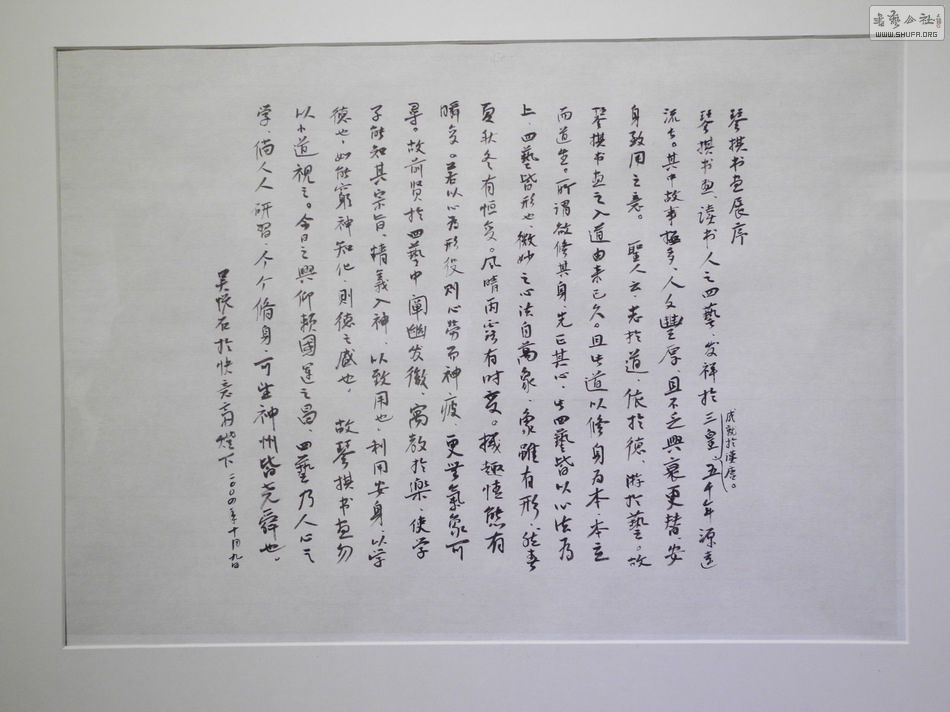 琴棋书画展序
琴棋书画、读书人之四藝、发祥於三皇、五千年源远
成就於漢唐。
流长。其中故事極多、人文豐厚、且不乏興衰更替、安
身致用之意。聖人云、志於道、依於德、游於藝。故
琴棋书画之入道由来已久。且此道以修身为本、本立
而道生。所谓欲修其身、先正其心、此四藝皆以心法為
上、四藝皆形也、微妙之心法自萬象、象雖有形、然春
夏秋冬有恒变。风晴雨露有时变。撼趣情態有
瞬变。若以心為形役、则心勞而神疲、更無氣象可
尋。故前贤於四藝中闡幽发微、寓教於樂、使学
子能知其宗旨、精義入神、以致用也、利用安身、以学
德也、如能窮神知化、则德之盛也。故琴棋书画勿
以小道視之。今日之興仰賴國運之昌、四藝乃人心之
学、倘人人研習、个个修身、可生神州皆尧舜也。
吴懷石於快意斋燈下 二〇〇四年十月九日
書藝公社
WWW.SHUFA.ORG